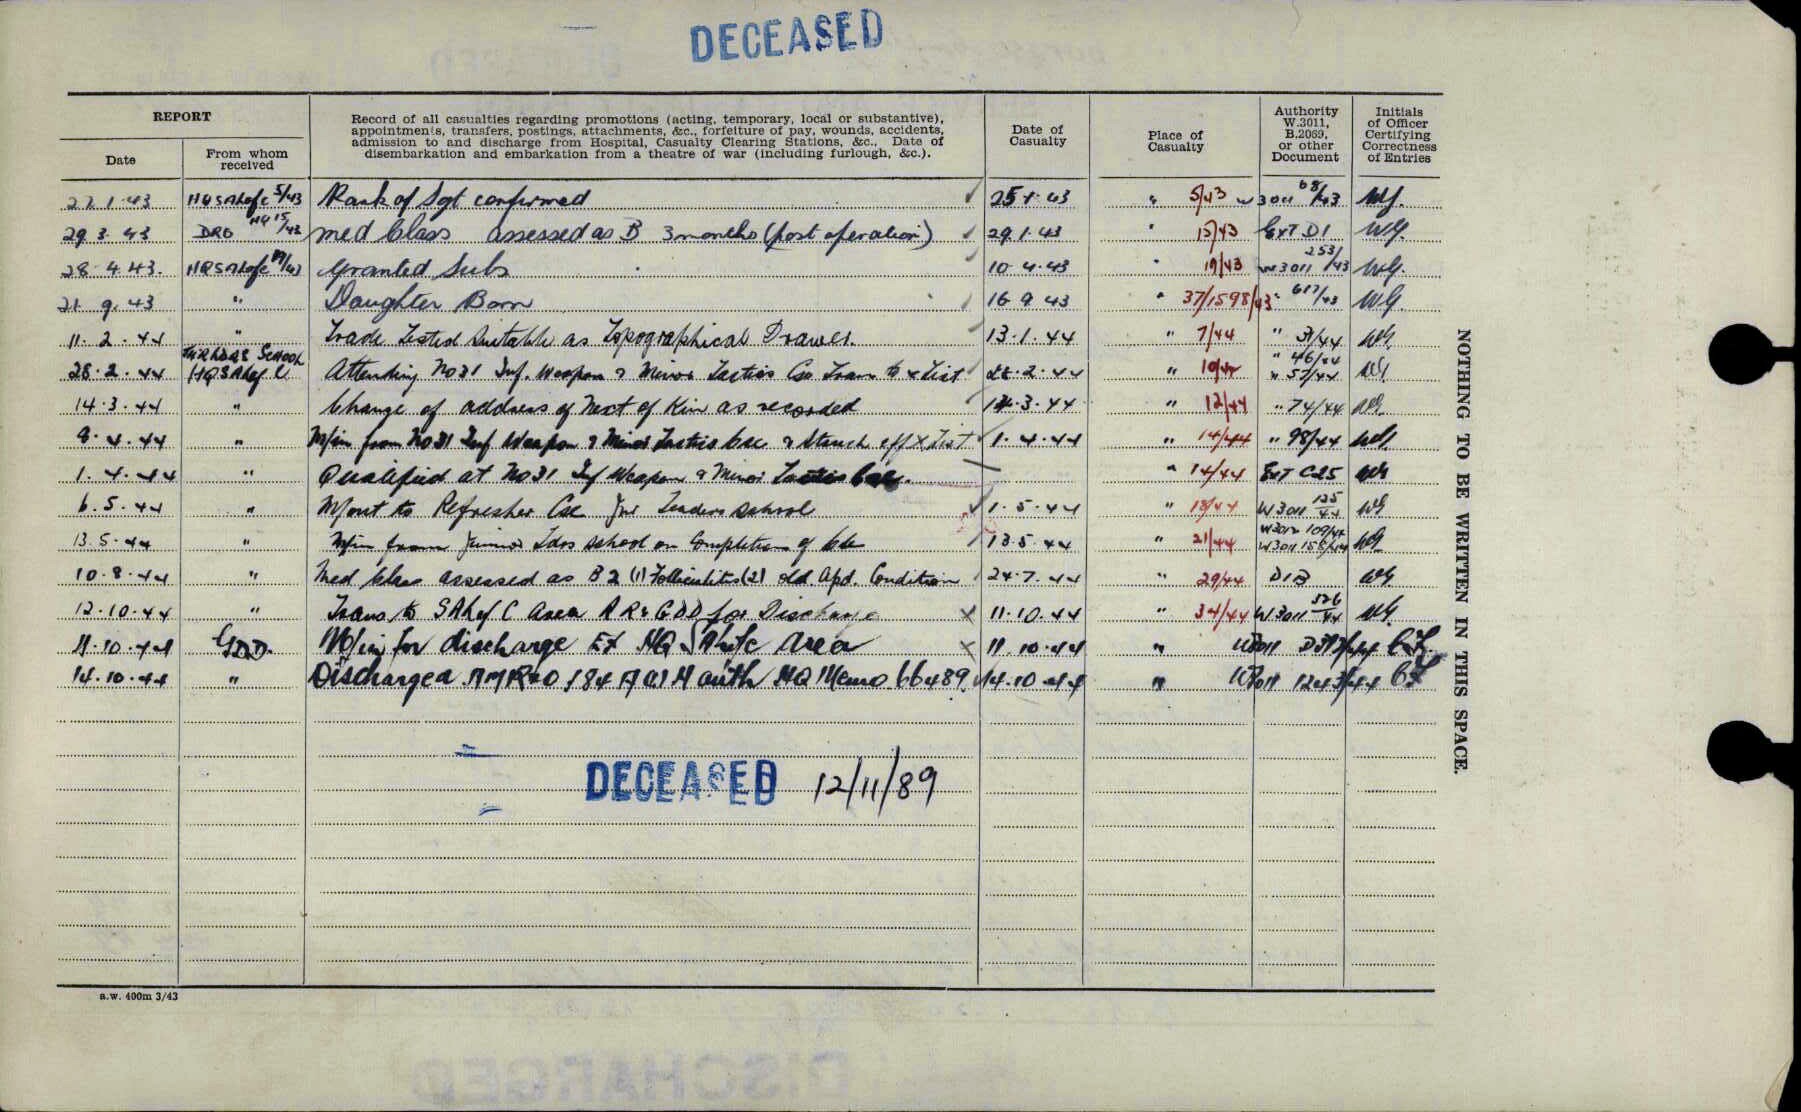 DECEASED
REPORT
Date
From whom received
Record of all casualties regarding promotions (acting, temporary, local or substantive),
appointments, transfers, postings, attachments, &c., forfeiture of pay, wounds, accidents,
admission to and discharge from Hospital, Casualty Clearing Stations, &c., Date of
disembarkation and embarkation from a theatre of war (including furlough, &c.).
Date of Casualty
Place of Casualty
Authority W.3011, B.2069, or other Document
Initials of Officer Certifying Correctness of Entries
27.1.43 5/43 Rank of Sgt confirmed 25.1.43 " 5/43 W3011 68/43
29.3.43 DRO 15/43 Med Class assessed as B 3 months (post operation) 29.1.43 " 15/43 Ext D1 WG.
28.4.43. 19/43 Granted Subs 10.4.43 " 19/43 W3011 253/43 WG.
21.9.43 " Daughter Born 16.9.43 " 37/1598/43 " 617/43 WG.
11.2.44 " Trade Tested Suitable as Topographical Drawer. 13.1.44 " 7/44 " 31/44 WG.
28.2.44 School Attending No 31 Inf. Weapon & Minor Tactics Cse Trans to X List 2.44 " 10/44 " 46/44 " 57/44 WG.
14.3.44 " Change of address of Next of Kin as recorded 3.44 " 12/44 " 74/44 WG.
4.44 " M/in from No 31 Inf Weapon & Minor Tactics Cse & Struck off X List 1.4.44 " 14/44 " 98/44 WG.
1.4.44 " Qualified at No 31 Inf Weapon & Minor Tactics " 14/44 Ext C25 WG
6.5.44 " M/out to Refresher Cse Jnr Leaders School 1.5.44 " 18/44 W3011 125/44 WG
13.5.44 " M/in from Junior Ldrs School on Completion of Cse 13.5.44 " 21/44 109/44 W3011 WG.
10.8.44 " Med Class assessed as B2 (1) Folliculitis (2) old Condition 24.7.44 " 29/44 WG
12.10.44 " Trans to Area RR & GDD for Discharge 11.10.44 " 34/44 W3011 526/44 WG.
11.10.44 GDD. M/in for discharge Ex HQ Area 11.10.44 " W3011
14.10.44 " Discharged auth HQ Memo 66489. 14.10.44 " W3011 1243/44
DECEASED 12/11/89
a.w. 400m 3/43
NOTHING TO BE WRITTEN IN THIS SPACE.
DISCHARGED